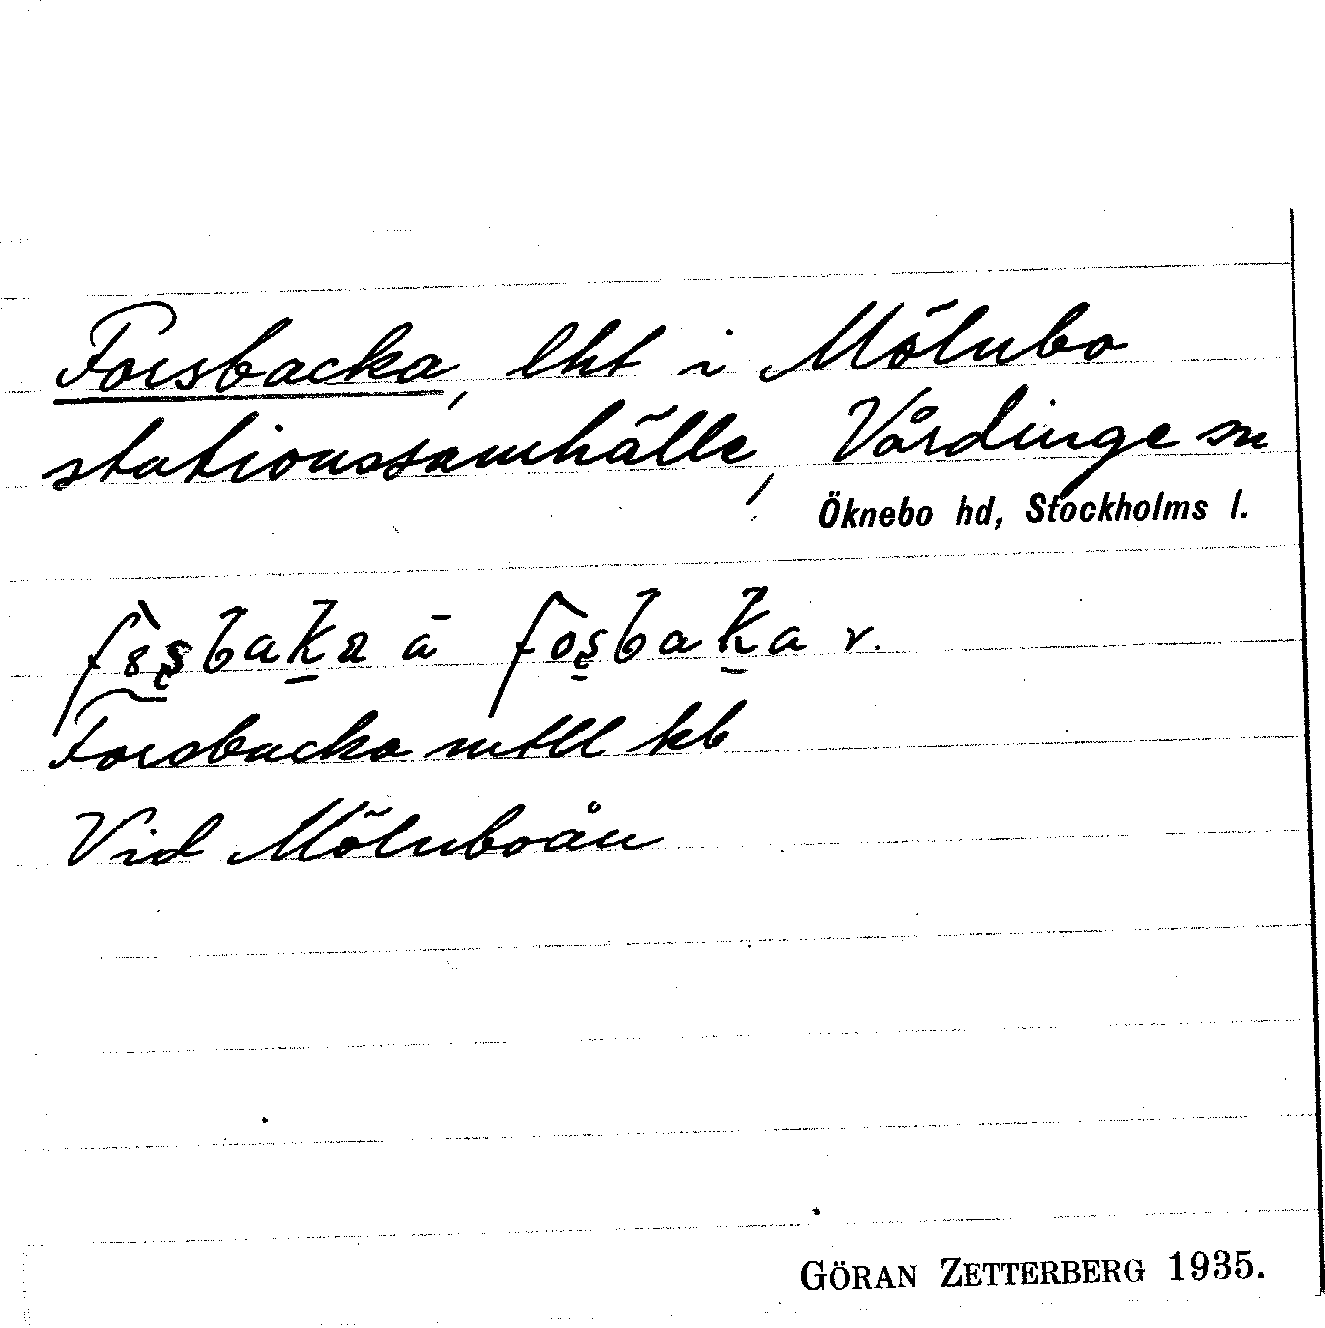 Forsbacka, lht i Mölnbo
stationssamhälle, Vårdinge sn
Öknebo hd, Stockholms l.
v.
Forsbacka mtll kb
Vid Mölnboån
GÖRAN ZETTERBERG 1935.